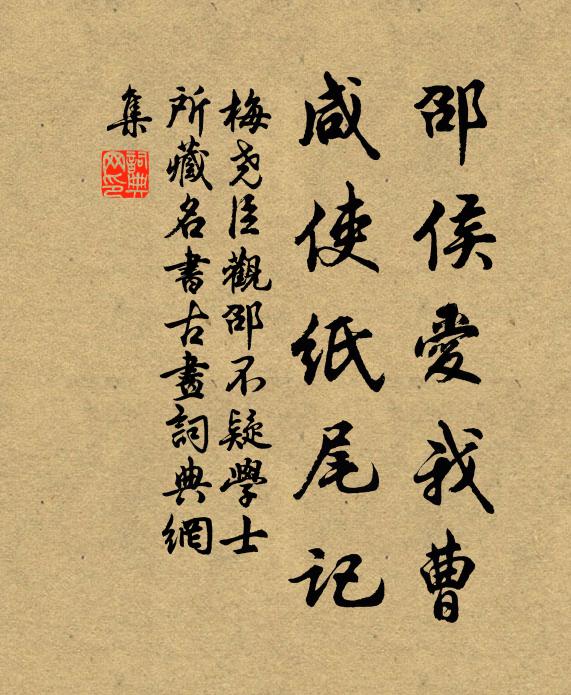 邵侯愛我曹
咸使紙尾記
梅堯臣觀邵不疑學士
所藏名書古畫詞典網
集
詞典
网印